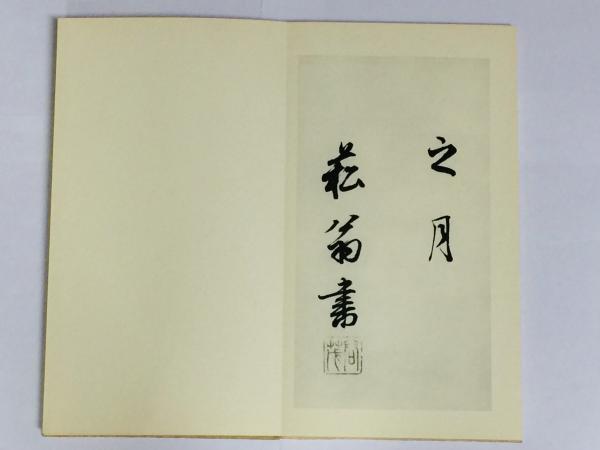 之月
菘翁書